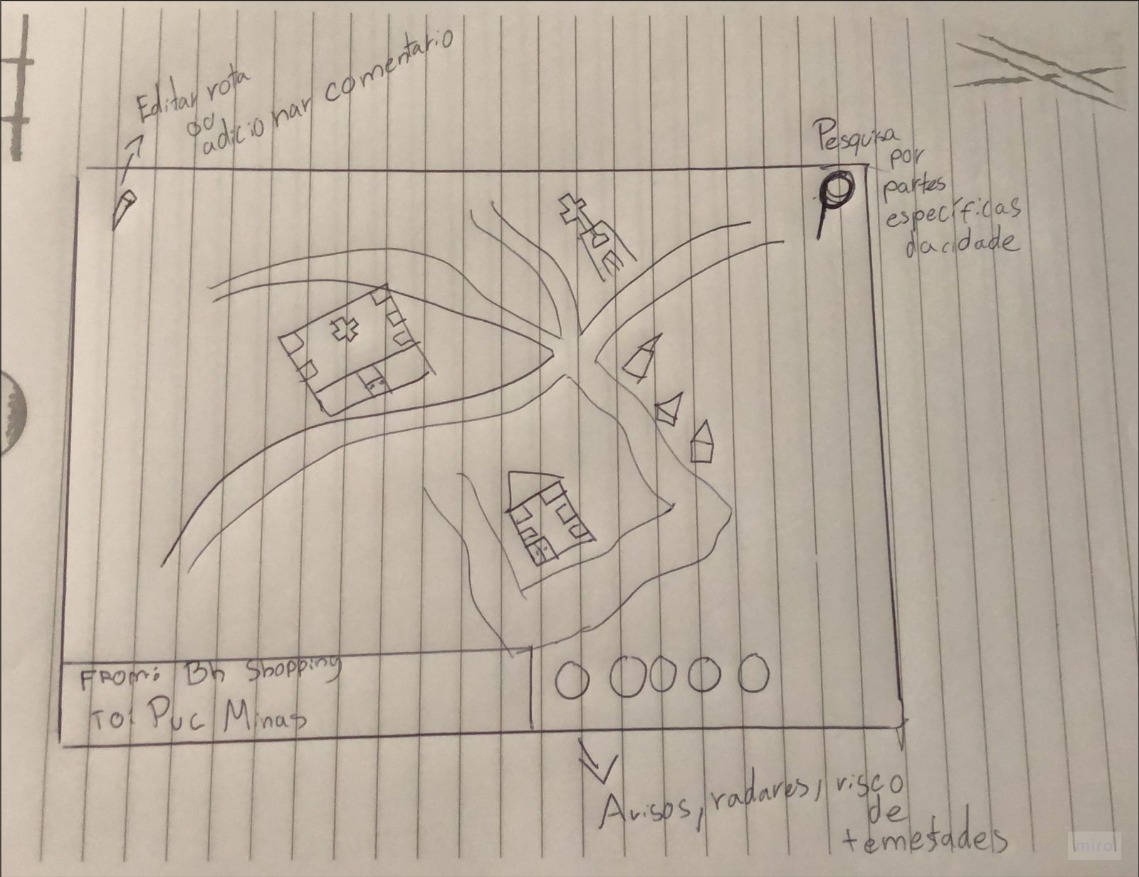 Editar rota
ou
adicionar comentario
Pesquisa
por
partes
específicas
dacidade
FROM: Bh Shopping
TO: Puc Minas
Avisos, radares, risco
de
temestades
miro